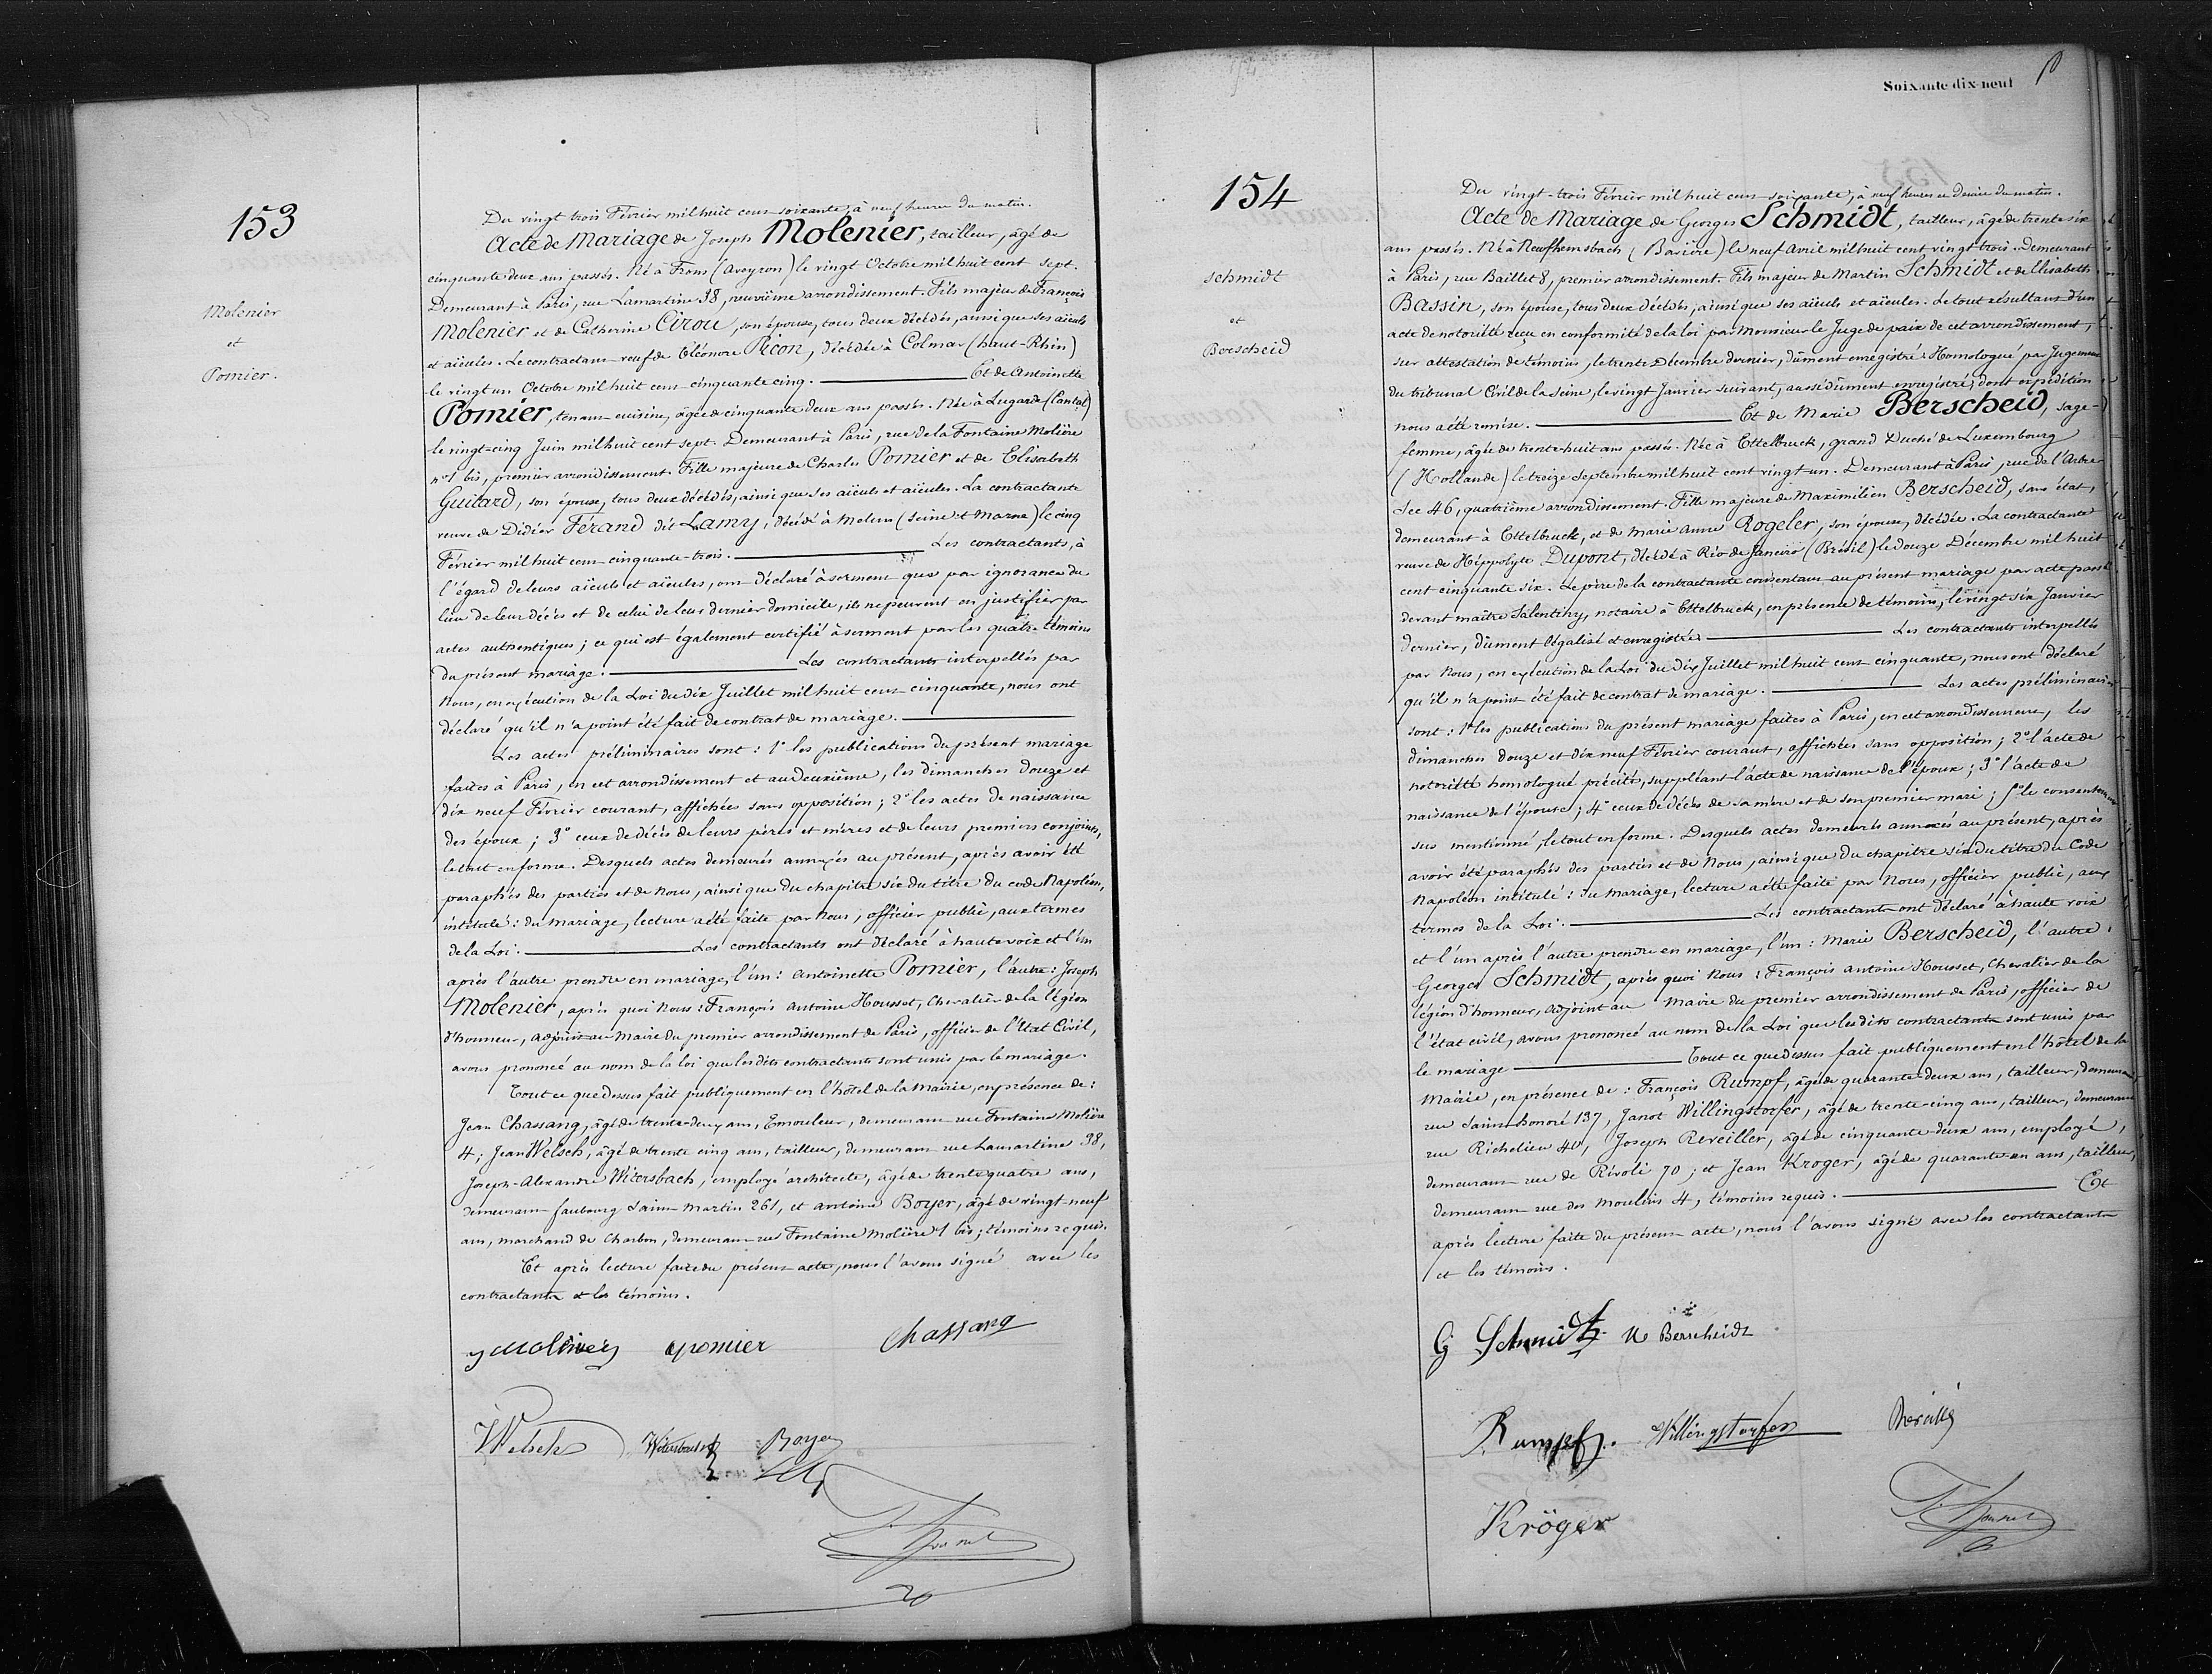 153
Molenier
et
Pomier.
Du vingt trois Février mil huit cent soixante, à neuf heures du matin.
Acte de Mariage de Joseph Molenier, tailleur, âgé de
cinquante deux ans passés. Né à Frons (Aveyron) le vingt Octobre mil huit cent sept.
Demeurant à Paris, rue Lamartine 38, neuvième arrondissement. Fils majeur de François
Molenier et de Catherine Cirou, son épouse, tous deux décédés, ainsi que ses aïeuls
et aïeules. Le contractant veuf de Eléonore Picon, décédée à Colmar (haut-Rhin)
le vingt un Octobre mil huit cent cinquante cinq. — Et de Antoinette
Pomier, tenant cuisine, âgée de cinquante deux ans passés. Née à Lugarde (Cantal)
le vingt-cinq Juin mil huit cent sept. Demeurant à Paris, rue de la Fontaine Molière
n° 1 bis, premier arrondissement. Fille majeure de Charles Pomier et de Elisabeth
Guitard, son épouse, tous deux décédés, ainsi que ses aïeuls et aïeules. La contractante
veuve de Didier Férand dit Lamy, décédé à Melun (Seine et Marne) le cinq
Février mil huit cent cinquante-trois. — Les contractants, à
l'égard de leurs aïeuls et aïeules, ont déclaré à serment que par ignorance du
lieu de leur décès et de celui de leur dernier domicile, ils ne peuvent en justifier par
actes authentiques; ce qui est également certifié à serment par les quatre témoins
du présent mariage. — Les contractants interpellés par
Nous, en exécution de la Loi du dix Juillet mil huit cent cinquante, nous ont
déclaré qu'il n'a point été fait de contrat de mariage. —
Les actes préliminaires sont: 1° les publications du présent mariage
faites à Paris, en cet arrondissement et au deuxième, les dimanches douze et
dix neuf Février courant, affichées sans opposition; 2° les actes de naissance
des époux; 3° ceux de décès de leurs pères et mères et de leurs premiers conjoints,
le tout en forme. Desquels actes demeurés annexés au présent, après avoir été
paraphés des parties et de Nous, ainsi que du chapitre six du titre du code Napoléon,
intitulé: du Mariage, lecture a été faite par Nous, officier public, aux termes
de la Loi. — Les contractants ont déclaré à haute voix et l'un
après l'autre prendre en mariage, l'un: Antoinette Pomier, l'autre: Joseph
Molenier, après quoi Nous: François Antoine Housset, Chevalier de la légion
d'honneur, adjoint au Maire du premier arrondissement de Paris, officier de l'Etat Civil,
avons prononcé au nom de la loi que les dits contractants sont unis par le mariage.
Tout ce que dessus fait publiquement en l'hôtel de la Mairie, en présence de:
Jean Chassang, âgé de trente-deux ans, Emouleur, demeurant rue Fontaine Molière
4; Jean Welsch, âgé de trente cinq ans, tailleur, demeurant rue Lamartine 38,
Joseph-Alexandre Witersbach, employé architecte, âgé de trente quatre ans,
demeurant faubourg Saint Martin 261, et antoine Boyer, âgé de vingt-neuf
ans, marchand de charbon, demeurant rue Fontaine Molière 1 bis; témoins requis.
Et après lecture faite du présent acte, nous l'avons signé avec les
contractants et les témoins.
J Molinier apomier Chassang
JWelsch Witersbach Boyer
F. Housset
Soixante-dix-neuf
154
Schmidt
et
Berscheid
Du vingt-trois Février mil huit cent soixante, à neuf heures et demie du matin.
Acte de Mariage de Georges Schmidt, tailleur, âgé de trente six
ans passés. Né à Neufhemsbach (Bavière) le neuf Avril mil huit cent vingt trois. Demeurant
à Paris, rue Baillet 8, premier arrondissement. Fils majeur de Martin Schmidt et de Elisabeth
Bassin, son épouse, tous deux décédés, ainsi que ses aïeuls et aïeules. Le tout résultant d'un
acte de notoriété reçu en conformité de la loi par Monsieur le Juge de paix de cet arrondissement,
sur attestation de témoins, le trente Décembre dernier, dûment enregistré. Homologué par Jugement
du tribunal Civil de la Seine, le vingt Janvier suivant, aussi dûment enregistré, dont expédition
nous a été remise. — Et de Marie Berscheid, sage-
femme, âgée de trente-huit ans passés. Née à Ettelbruck, grand Duché de Luxembourg
(Hollande) le treize Septembre mil huit cent vingt un. Demeurant à Paris, rue de l'Arbre
Sec 46, quatrième arrondissement. Fille majeure de Maximilien Berscheid, sans état,
demeurant à Ettelbruck, et de Marie Anne Rogeler, son épouse, décédée. La contractante
veuve de Hippolyte Dupont, décédé à Rio de Janeiro (Brésil) le douze Décembre mil huit
cent cinquante six. Le père de la contractante consentant au présent mariage par acte passé
devant maître Salentiny, notaire à Ettelbruck, en présence de témoins, le vingt six Janvier
dernier, dûment légalisé et enregistré. — Les contractants interpellés
par Nous, en exécution de la Loi du dix Juillet mil huit cent cinquante, nous ont déclaré
qu'il n'a point été fait de contrat de mariage. — Les actes préliminaires
sont: 1° les publications du présent mariage faites à Paris, en cet arrondissement, les
dimanches douze et dix neuf Février courant, affichées sans opposition; 2° l'acte de
notoriété homologué précité, suppléant l'acte de naissance de l'époux; 3° l'acte de
naissance de l'épouse; 4° ceux de décès de sa mère et de son premier mari; 5° le consentement
sus mentionné, le tout en forme. Desquels actes demeurés annexés au présent, après
avoir été paraphés des parties et de Nous, ainsi que du chapitre six du titre du Code
Napoléon intitulé: du Mariage, lecture a été faite par Nous, officier public, aux
termes de la Loi. — Les contractants ont déclaré à haute voix
et l'un après l'autre prendre en mariage, l'un: Marie Berscheid, l'autre:
Georges Schmidt, après quoi Nous: François Antoine Housset, Chevalier de la
légion d'honneur, adjoint au Maire du premier arrondissement de Paris, officier de
l'état civil, avons prononcé au nom de la Loi que les dits contractants sont unis par
le mariage — Tout ce que dessus fait publiquement en l'hôtel de la
Mairie, en présence de: François Rumpf, âgé de quarante-deux ans, tailleur, demeurant
rue Saint-honoré 137, Janot Willingstorfer, âgé de trente-cinq ans, tailleur, demeurant
rue Richelieu 40, Joseph Reveiller, âgé de cinquante deux ans, employé,
demeurant rue de Rivoli 70; et Jean Kroger, âgé de quarante-un ans, tailleur,
demeurant rue des Moulins 4, témoins requis. — Et
après lecture faite du présent acte, nous l'avons signé avec les contractants
et les témoins.
G Schmidt M Berscheidt
Rumpf. Willingstorfer
Kröger F. Housset